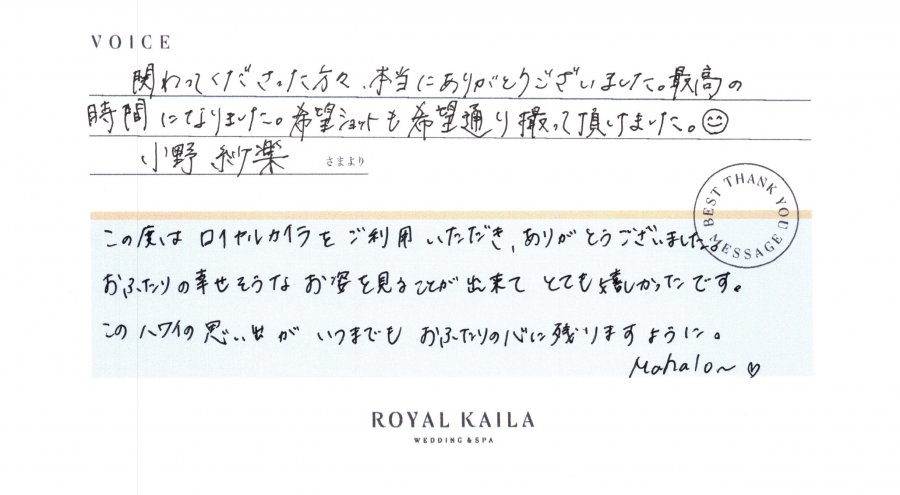 VOICE
関わってくださった方々、本当にありがとうございました。最高の
時間になりました。希望ショットも希望通り撮って頂けました。☺
小野 紗楽 さまより
BEST THANK YOU MESSAGE
この度は ロイヤルカイラを ご利用 いただき、ありがとうございました。
おふたりの幸せそうな お姿を見ることが出来て とても嬉しかったです。
このハワイの思い出が いつまでも おふたりの心に残りますように。
Mahalo~ ♡
ROYAL KAILA
WEDDING & SPA